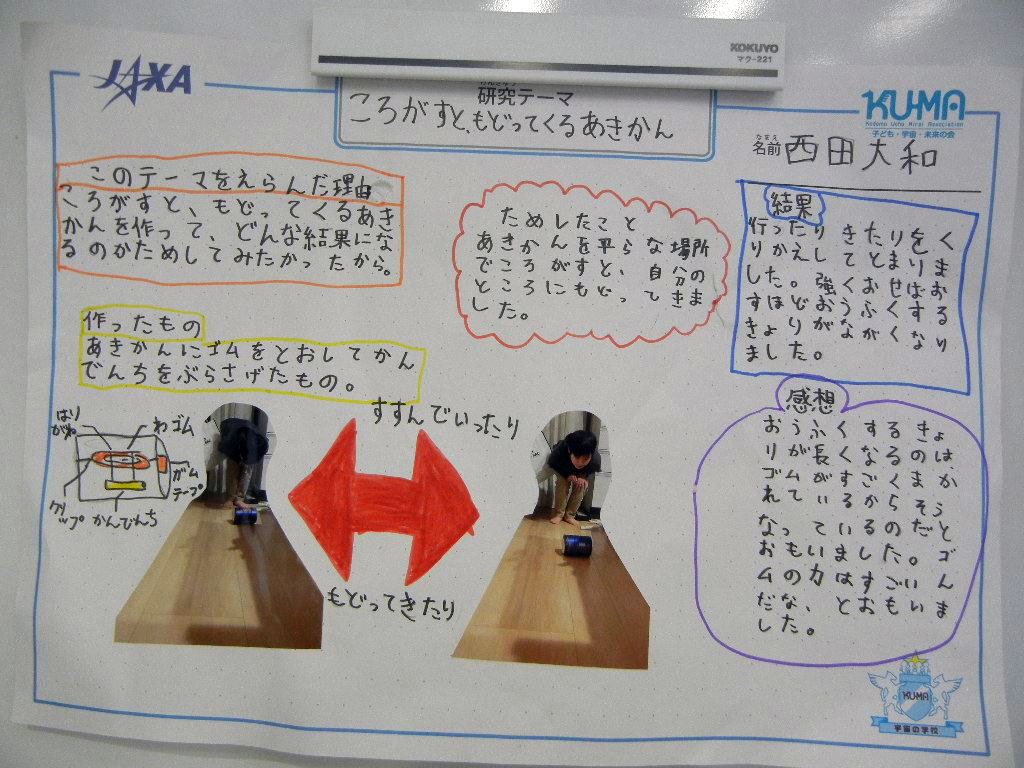 JAXA
KOKUYO
マク-221
けんきゅう
研究テーマ
ころがすと、もどってくるあきかん
KU-MA
Kodomo Uchu Mirai Association
子ども・宇宙・未来の会
なまえ
名前 西田大和
このテーマをえらんだ理由
ころがすと、もどってくるあき
かんを作って、どんな結果にな
るのかためしてみたかったから。
ためしたこと
あきかんを平らな場所
でころがすと、自分の
ところにもどってきま
した。
結果
行ったりきたりをく
りかえしてとまりま
した。強くおせばお
すほどおうふくする
きょりがながくなり
ました。
作ったもの
あきかんにゴムをとおしてかん
でんちをぶらさげたもの。
はりがね
わゴム
ガムテープ
クリップ
かんでんち
すすんでいったり
もどってきたり
感想
おうふくするきょ
りが長くなるのは、
ゴムがぐるぐるまか
れているからそう
なっているのだと
おもいました。ゴ
ムの力はすごいん
だな、とおもいま
した。
KUMA
宇宙の学校